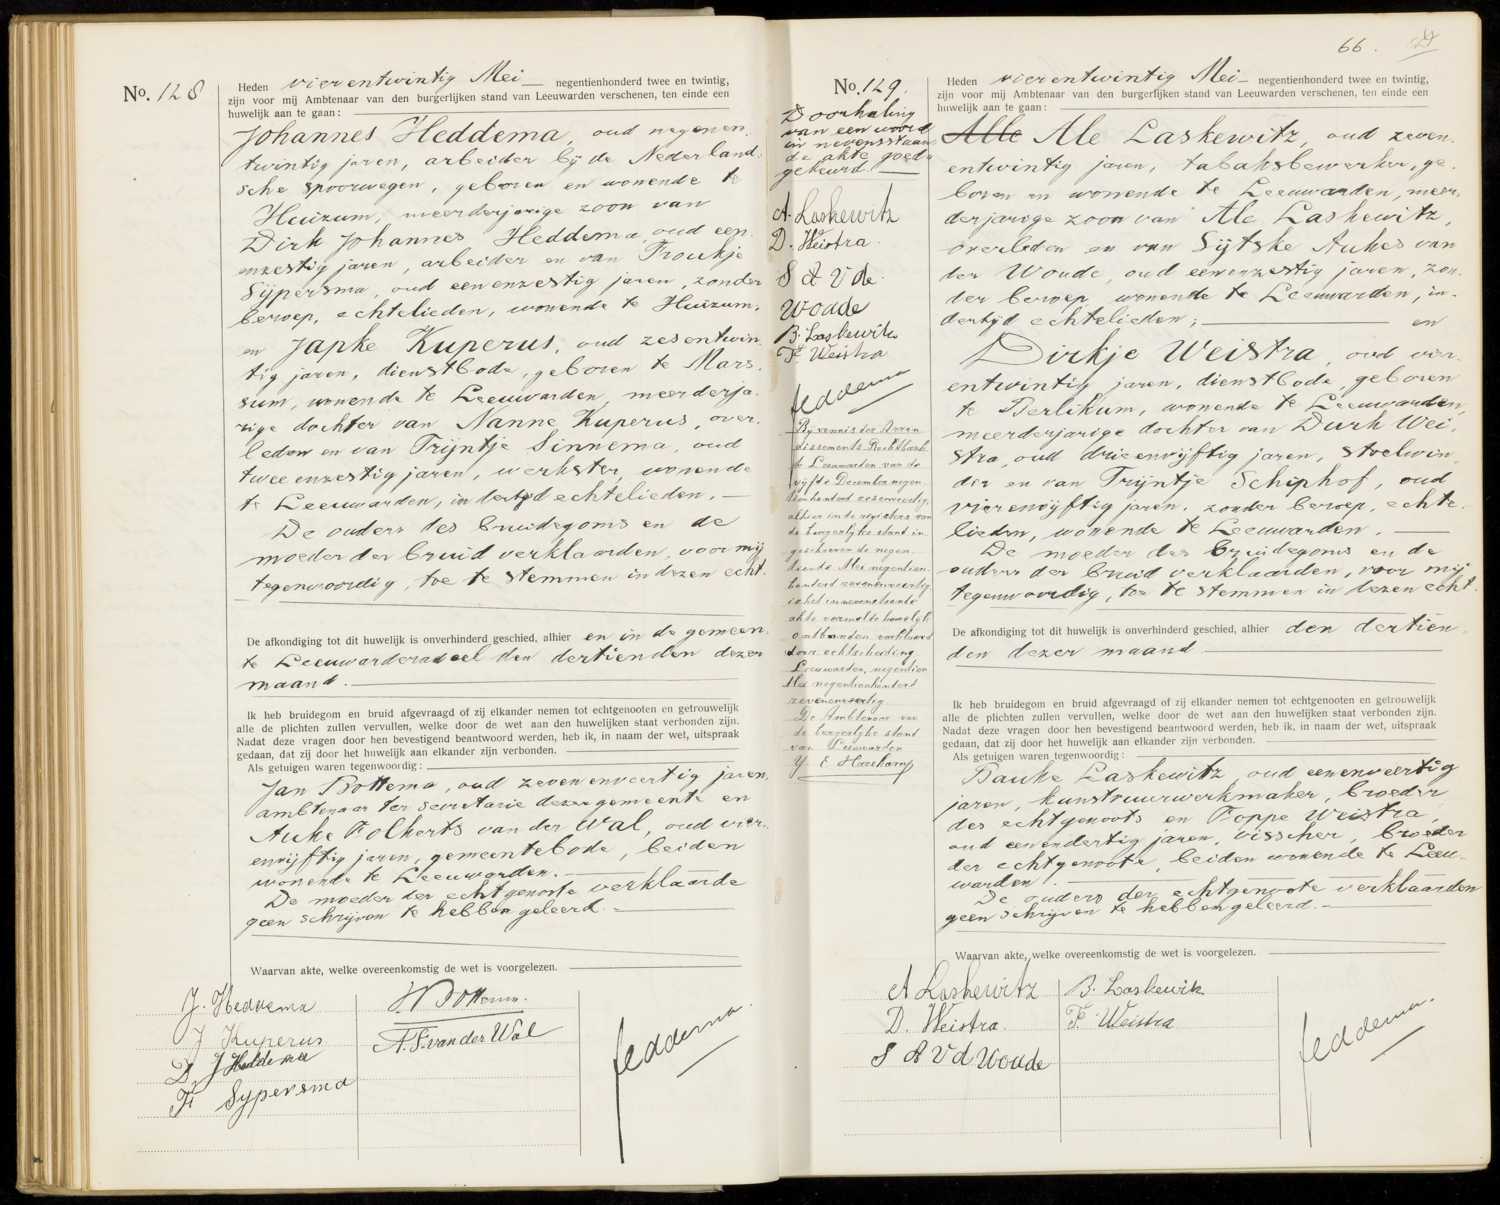 No. 128
Heden vierentwintig Mei negentienhonderd twee en twintig,
zijn voor mij Ambtenaar van den burgerlijken stand van Leeuwarden verschenen, ten einde een
huwelijk aan te gaan:
Johannes Heddema, oud negenen-
twintig jaren, arbeider bij de Nederland-
sche spoorwegen, geboren en wonende te
Huizum, meerderjarige zoon van
Dirk Johannes Heddema, oud een-
enzestig jaren, arbeider en van Froukje
Sijpersma, oud eenenzestig jaren, zonder
beroep, echtelieden, wonende te Huizum,
en Japke Kuperus, oud zesentwin-
tig jaren, dienstbode, geboren te Mars-
sum, wonende te Leeuwarden, meerderja-
rige dochter van Nanne Kuperus, over-
leden en van Trijntje Sinnema, oud
tweeenzestig jaren, werkster, wonende
te Leeuwarden, in der tijd echtelieden.
De ouders des bruidegoms en de
moeder der bruid verklaarden, voor mij
tegenwoordig, toe te stemmen in dezen echt.
De afkondiging tot dit huwelijk is onverhinderd geschied, alhier en in de gemeen-
te Leeuwarderadeel den dertienden dezer
maand.
Ik heb bruidegom en bruid afgevraagd of zij elkander nemen tot echtgenooten en getrouwelijk
alle de plichten zullen vervullen, welke door de wet aan den huwelijken staat verbonden zijn.
Nadat deze vragen door hen bevestigend beantwoord werden, heb ik, in naam der wet, uitspraak
gedaan, dat zij door het huwelijk aan elkander zijn verbonden.
Als getuigen waren tegenwoordig:
Jan Bottema, oud zevenenveertig jaren,
ambtenaar ter secretarie dezer gemeente en
Auke Folkerts van der Wal, oud vier-
envijftig jaren, gemeentebode, beiden
wonende te Leeuwarden.
De moeder der echtgenoote verklaarde
geen schrijven te hebben geleerd.
Waarvan akte, welke overeenkomstig de wet is voorgelezen.
J. Heddema
J Kuperus
D J Heddema
F Sypersma
Bottema.
A. F. van der Wal
feddema.
66.
No. 129.
Doorhaling
van een woord
in nevensstaan-
de akte goed-
gekeurd.
A. Laskewitz
D. Weistra.
S A V de
Woude
B. Laskewitz
F. Weistra
feddema
Bij vonnis der Arron-
dissements Rechtbank
te Leeuwarden van de
vijfde December negen-
tienhonderd zesenveertig,
alhier in de registers van
de burgerlijke stand in-
geschreven de negen-
tiende Mei negentien-
honderd zevenenveertig
is het in nevenstaande
akte vermelde huwelijk
ontbonden verklaard
door echtscheiding
Leeuwarden, negentien
Mei negentienhonderd
zevenenveertig
De Ambtenaar van
de burgerlijke stand
van Leeuwarden
Heden vierentwintig Mei negentienhonderd twee en twintig,
zijn voor mij Ambtenaar van den burgerlijken stand van Leeuwarden verschenen, ten einde een
huwelijk aan te gaan:
Alle Ale Laskewitz, oud zeven-
entwintig jaren, tabaksbewerker, ge-
boren en wonende te Leeuwarden, meer-
derjarige zoon van Ale Laskewitz,
overleden en van Sijtske Aukes van
der Woude, oud eenenzestig jaren, zon-
der beroep, wonende te Leeuwarden, in-
dertijd echtelieden; en
Dirkje Weistra, oud vier-
entwintig jaren, dienstbode, geboren
te Berlikum, wonende te Leeuwarden,
meerderjarige dochter van Durk Wei-
stra, oud drieenvijftig jaren, stoelwin-
der en van Trijntje Schiphof, oud
vierenvijftig jaren, zonder beroep, echte-
lieden, wonende te Leeuwarden.
De moeder des bruidegoms en de
ouders der bruid verklaarden, voor mij
tegenwoordig, toe te stemmen in dezen echt.
De afkondiging tot dit huwelijk is onverhinderd geschied, alhier den dertien-
den dezer maand
Ik heb bruidegom en bruid afgevraagd of zij elkander nemen tot echtgenooten en getrouwelijk
alle de plichten zullen vervullen, welke door de wet aan den huwelijken staat verbonden zijn.
Nadat deze vragen door hen bevestigend beantwoord werden, heb ik, in naam der wet, uitspraak
gedaan, dat zij door het huwelijk aan elkander zijn verbonden.
Als getuigen waren tegenwoordig:
Bauke Laskewitz, oud eenenveertig
jaren, kunstvuurwerkmaker, broeder
des echtgenoots en Foppe Weistra,
oud eenendertig jaren, visscher, broeder
der echtgenoote, beiden wonende te Leeu-
warden.
De ouders der echtgenoote verklaarden
geen schrijven te hebben geleerd.
Waarvan akte, welke overeenkomstig de wet is voorgelezen.
A Laskewitz
D. Weistra.
S A V d Woude
B. Laskewitz
F. Weistra
feddema.